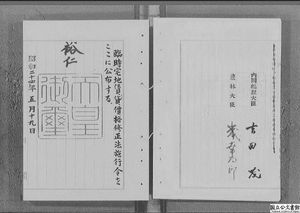 臨時宅地賃貸価格修正法施行令を
ここに公布する。
裕仁
天皇
御璽
昭和二十四年五月十九日
内閣総理大臣
吉田茂
農林大臣
国立公文書館